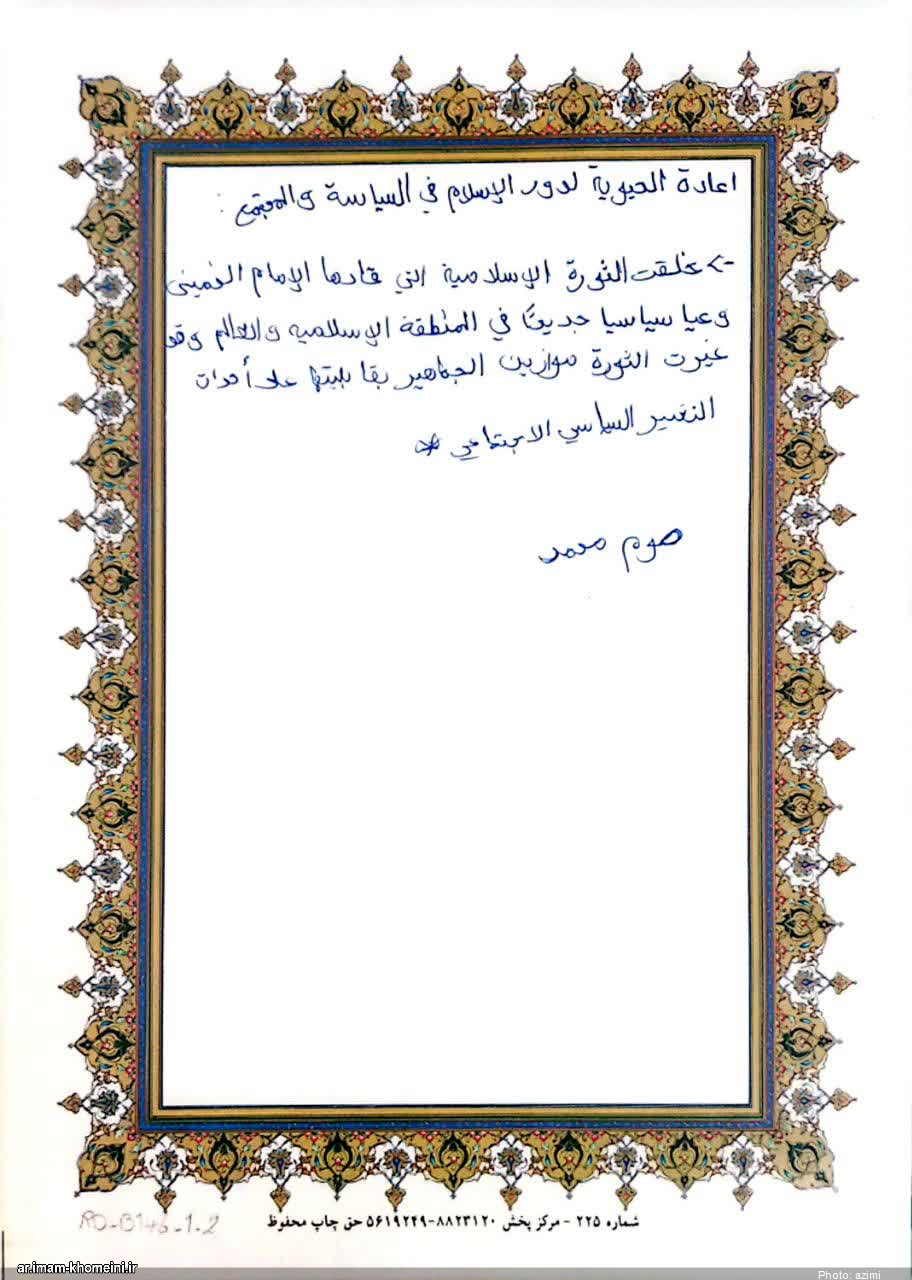 اعادة الحيوية لدور الإسلام في السياسة والمجتمع :
-> خلقت الثورة الإسلامية التي قادها الإمام الخميني
وعيا سياسيا جديدًا في المنطقة الإسلامية والعالم وقد
غيرت الثورة موازين الجماهير بقابليتها على أحداث
التغيير السياسي الاجتماعي *
محمد
شماره ۲۲۵ - مرکز پخش ۸۸۲۳۱۲۰-۵۶۱۹۲۴۹ حق چاپ محفوظ
RD-B146-1-2
ar.imam-khomeini.ir
Photo: azimi